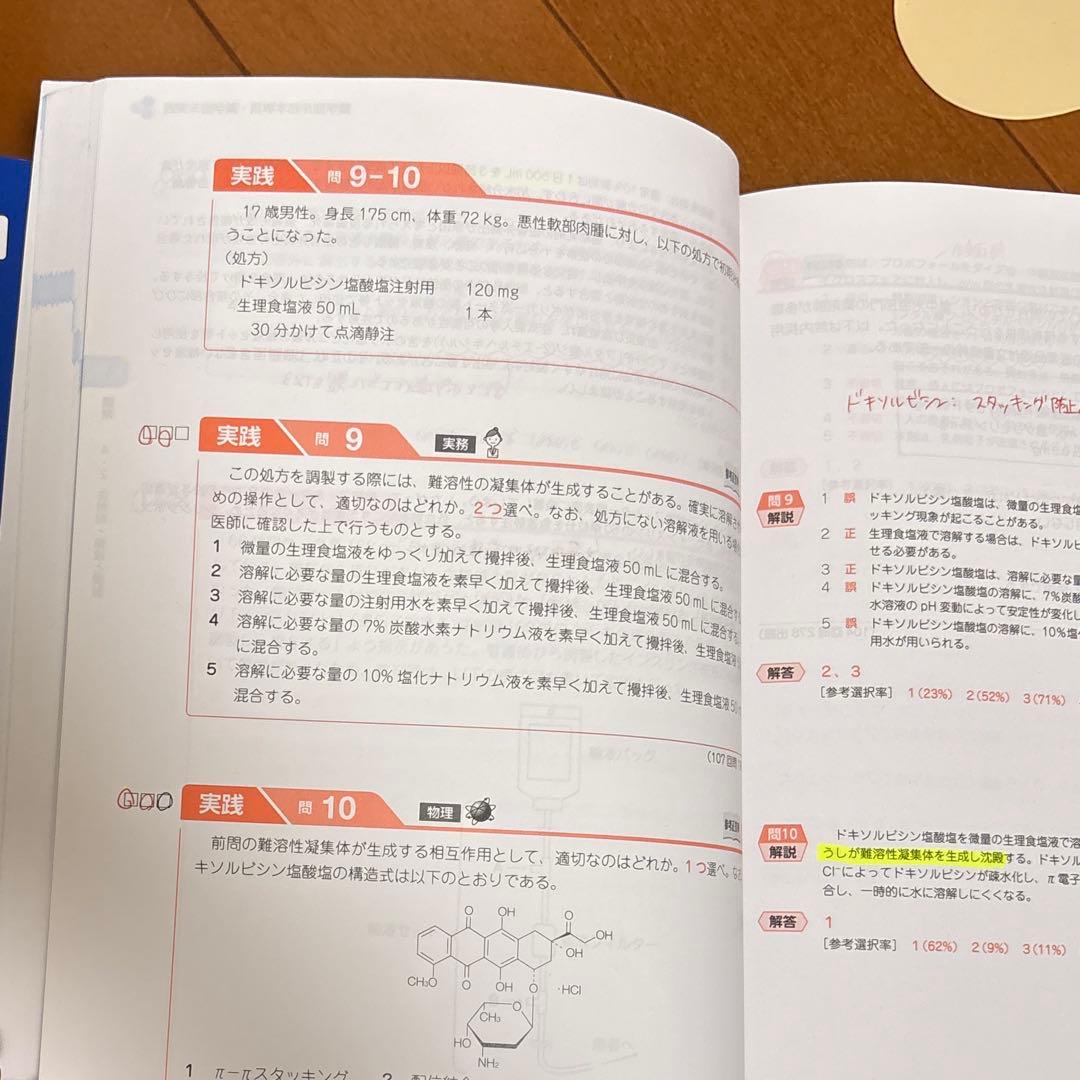 実践 問 9-10
17歳男性。身長175 cm、体重72 kg。悪性軟部肉腫に対し、以下の処方で初期
うことになった。
（処方）
ドキソルビシン塩酸塩注射用 120 mg
生理食塩液50 mL 1本
30分かけて点滴静注
実践 問 9 実務
この処方を調製する際には、難溶性の凝集体が生成することがある。確実に溶解さ
めの操作として、適切なのはどれか。2つ選べ。なお、処方にない溶解液を用いる場合
医師に確認した上で行うものとする。
1 微量の生理食塩液をゆっくり加えて攪拌後、生理食塩液50 mLに混合する。
2 溶解に必要な量の生理食塩液を素早く加えて攪拌後、生理食塩液50 mLに混合す
3 溶解に必要な量の注射用水を素早く加えて攪拌後、生理食塩液50 mLに混合する
4 溶解に必要な量の7%炭酸水素ナトリウム液を素早く加えて攪拌後、生理食塩液
に混合する。
5 溶解に必要な量の10%塩化ナトリウム液を素早く加えて攪拌後、生理食塩液50
混合する。
(107回問
実践 問 10 物理
前問の難溶性凝集体が生成する相互作用として、適切なのはどれか。1つ選べ。な
キソルビシン塩酸塩の構造式は以下のとおりである。
O OH O OH OH
CH₃O O OH O ·HCl
O CH₃
HO NH₂
1 π-πスタッキング 2 配位結合
ドキソルビシン： スタッキング防止
問9 解説
1 誤 ドキソルビシン塩酸塩は、微量の生理食塩
ッキング現象が起こることがある。
2 正 生理食塩液で溶解する場合は、ドキソルビ
せる必要がある。
3 正 ドキソルビシン塩酸塩は、溶解に必要な量
4 誤 ドキソルビシン塩酸塩の溶解に、7%炭酸
水溶液のpH変動によって安定性が変化し
5 誤 ドキソルビシン塩酸塩の溶解に、10%塩
用水が用いられる。
解答 2、3
［参考選択率］ 1(23%) 2(52%) 3(71%)
問10 解説
ドキソルビシン塩酸塩を微量の生理食塩液で溶
うしが難溶性凝集体を生成し沈殿する。ドキソル
Cl⁻によってドキソルビシンが疎水化し、π電子
合し、一時的に水に溶解しにくくなる。
解答 1
［参考選択率］ 1(62%) 2(9%) 3(11%)